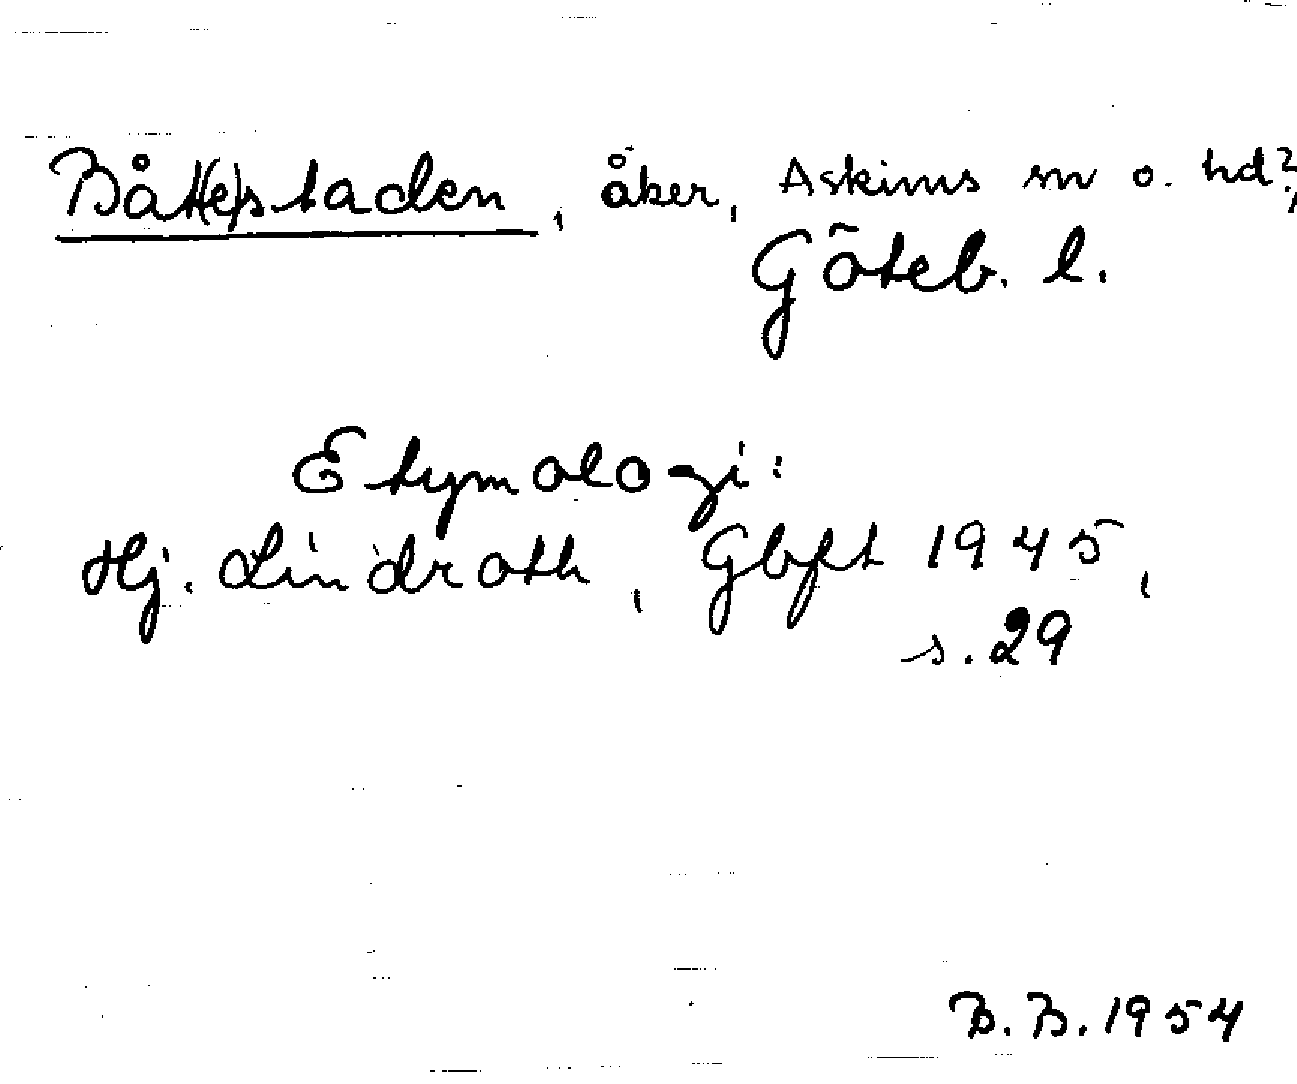 Båt(e)staden, åker, Askims sn o. hd?,
Göteb. l.
Etymologi:
Hj. Lindroth, Gbft 1945,
s. 29
B. B. 1954